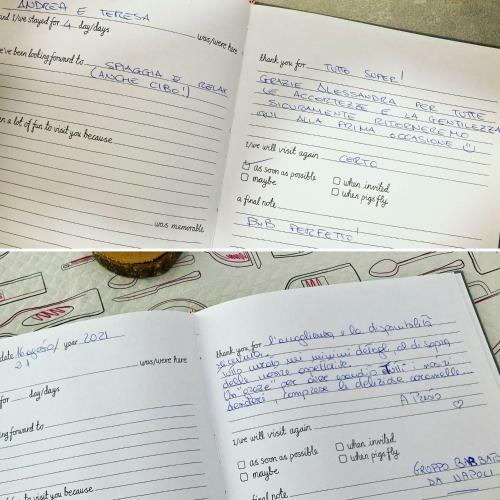 ANDREA E TERESA
and I/we stayed for 4 day/days
was/were here
we've been looking forward to SPIAGGIA E RELAX
(ANCHE CIBO!)
a lot of fun to visit you because
was memorable
thank you for TUTTO SUPER!
GRAZIE ALESSANDRA PER TUTTE
LE ACCORTEZZE E LA GENTILEZZA
SICURAMENTE RITORNEREMO
QUI ALLA PRIMA OCCASIONE
I/we will visit again CERTO
as soon as possible
maybe
when invited
when pigs fly
a final note
BnB PERFETTO!
date 16 agosto/ year 2021
21
was/were here
for day/days
looking forward to
to visit you because
thank you for l'accoglienza e la disponibilità
tutto curato nei minimi dettagli, al di sopra
delle nostre aspettative.
Un "grazie" per aver esaudito tutti i nostri
desideri, comprese le deliziose caramelle...
A Presto
I/we will visit again
as soon as possible
maybe
when invited
when pigs fly
GRUPPO BABBATO
DA NAPOLI
final note